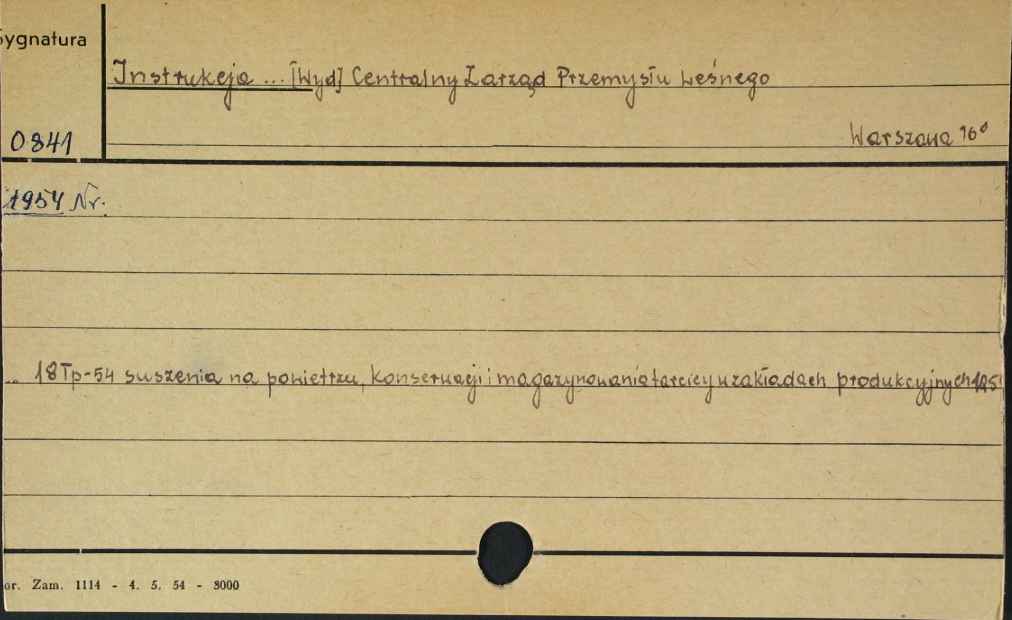 Sygnatura
Instrukcja ... [Wyd] Centralny Zarząd Przemysłu Leśnego
0841
Warszawa 16°
1954 Nr.
... 18Tp-54 suszenia na powietrzu, konserwacji i magazynowania tarcicy w zakładach produkcyjnych
or. Zam. 1114 - 4. 5. 54 - 8000